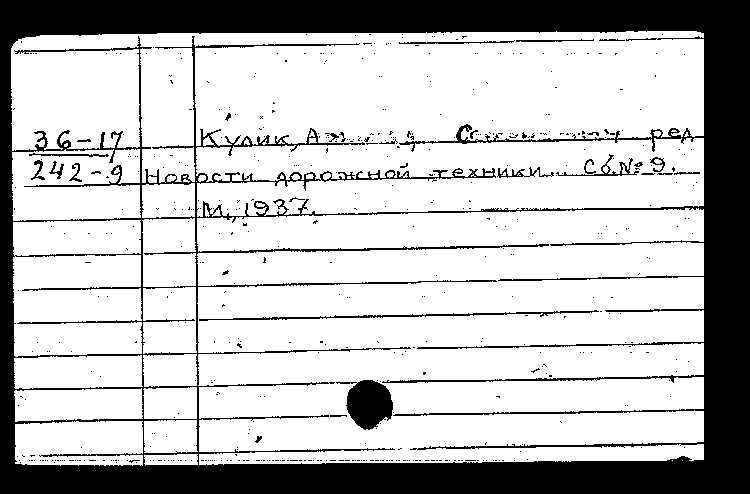 36-17 Кулик, А ред
242-9 Новости дорожной техники... Сб. № 9.
М., 1937.